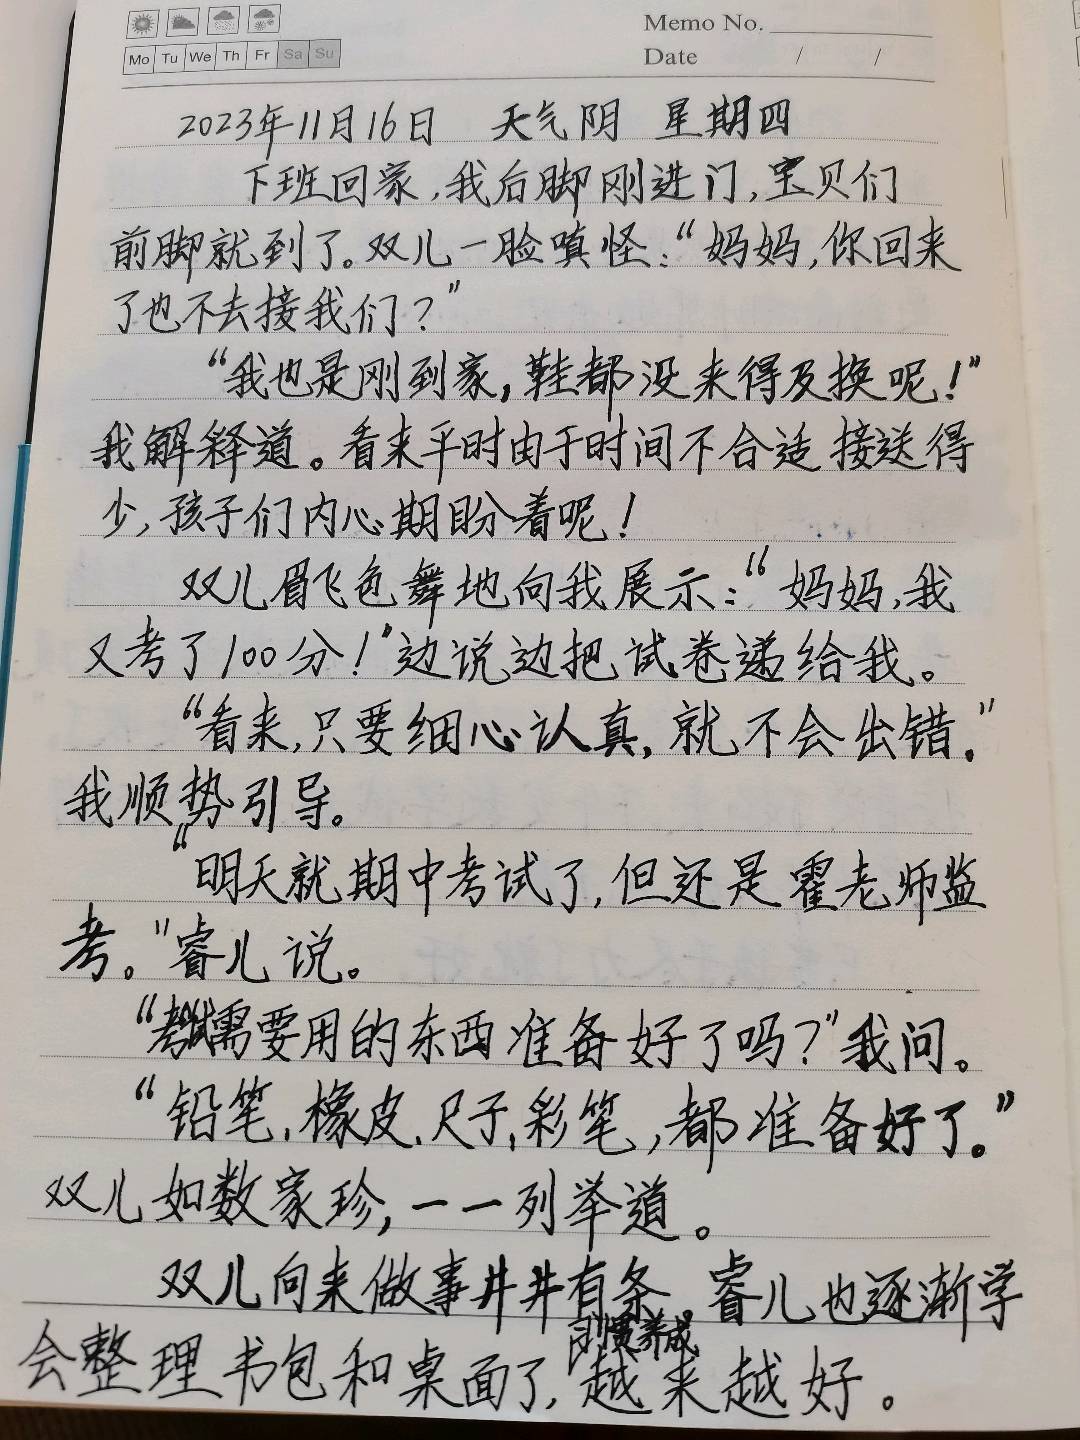 Memo No.
Mo Tu We Th Fr Sa Su
Date / /
2023年11月16日 天气阴 星期四
下班回家,我后脚刚进门,宝贝们
前脚就到了。双儿一脸嗔怪:“妈妈,你回来
了也不去接我们?”
“我也是刚到家,鞋都没来得及换呢!”
我解释道。看来平时由于时间不合适接送得
少,孩子们内心期盼着呢!
双儿眉飞色舞地向我展示:“妈妈,我
又考了100分!”边说边把试卷递给我。
“看来,只要细心认真,就不会出错。”
我顺势引导。
“明天就期中考试了,但还是霍老师监
考。”睿儿说。
“考试需要用的东西准备好了吗?”我问。
“铅笔,橡皮,尺子,彩笔,都准备好了。”
双儿如数家珍,一一列举道。
双儿向来做事井井有条。睿儿也逐渐学
会整理书包和桌面了,越来越好。
惯养成